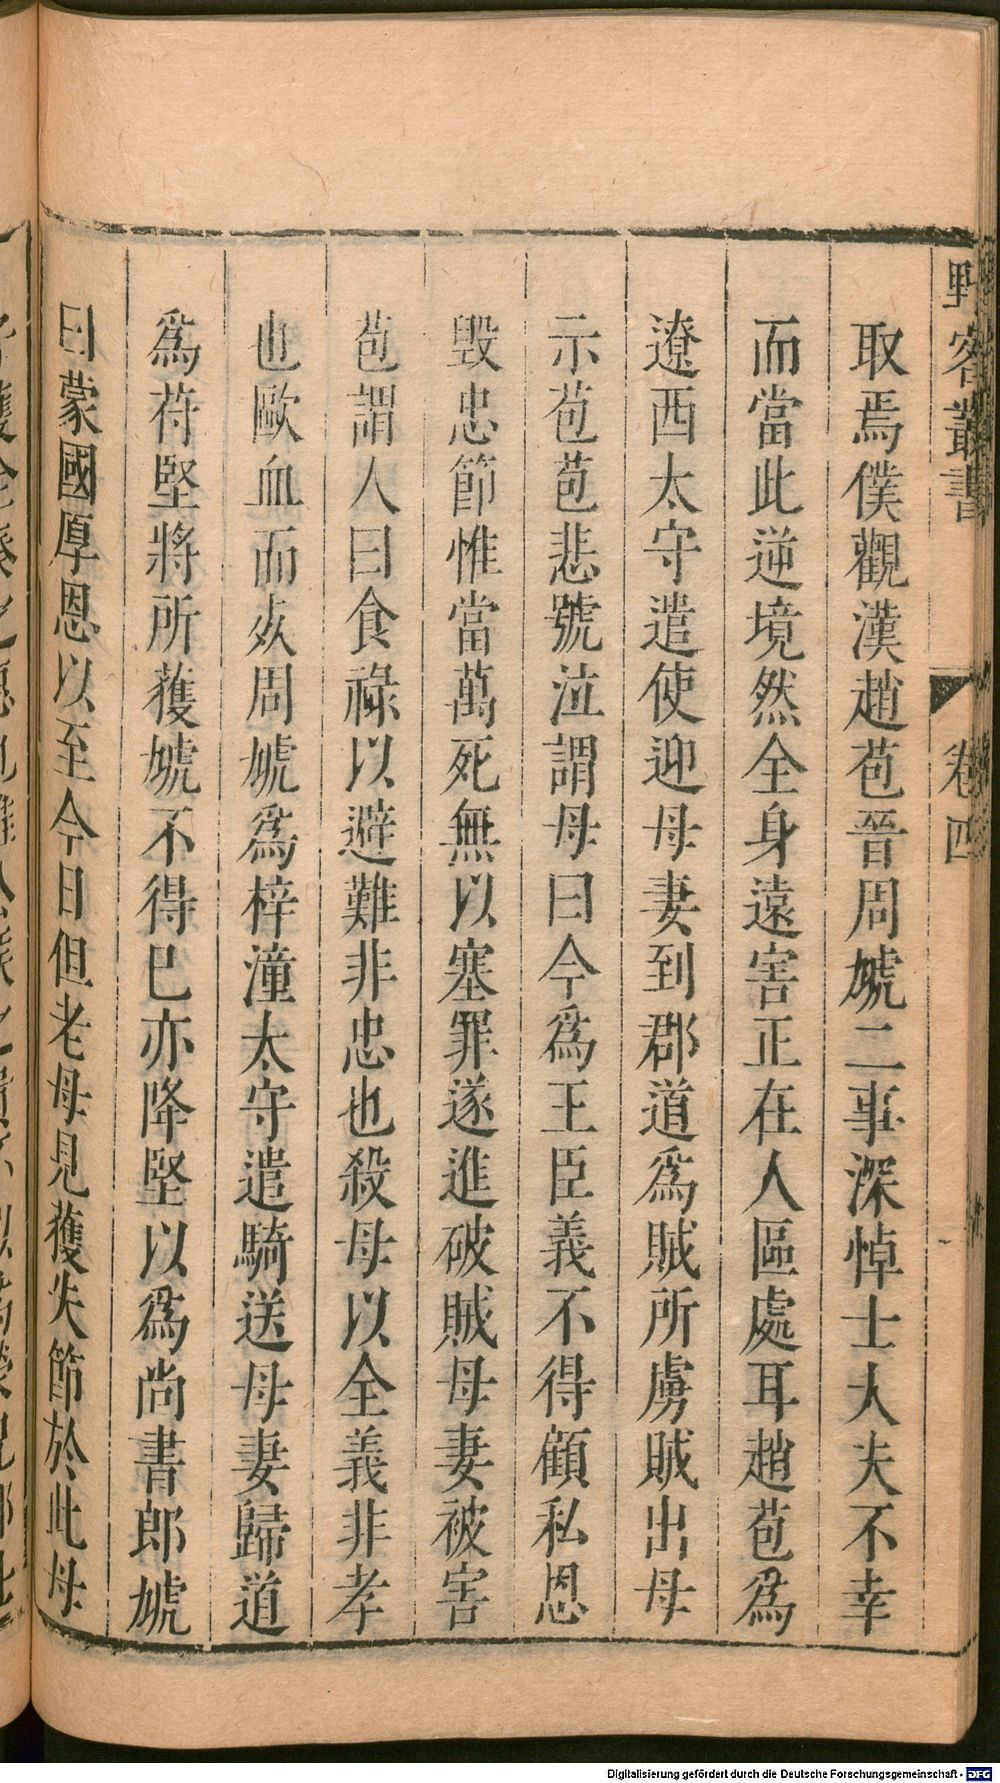 野客叢書 卷四
取焉僕觀漢趙苞晉周虓二事深悼士大夫不幸
而當此逆境然全身遠害正在人區處耳趙苞爲
遼西太守遣使迎母妻到郡道爲賊所虜賊出母
示苞苞悲號泣謂母曰今爲王臣義不得顧私恩
毀忠節惟當萬死無以塞罪遂進破賊母妻被害
苞謂人曰食祿以避難非忠也殺母以全義非孝
也歐血而死周虓爲梓潼太守遣騎送母妻歸道
爲苻堅將所獲虓不得已亦降堅以爲尚書郎虓
曰蒙國厚恩以至今日但老母見獲失節於此母
Digitalisierung gefördert durch die Deutsche Forschungsgemeinschaft - DFG